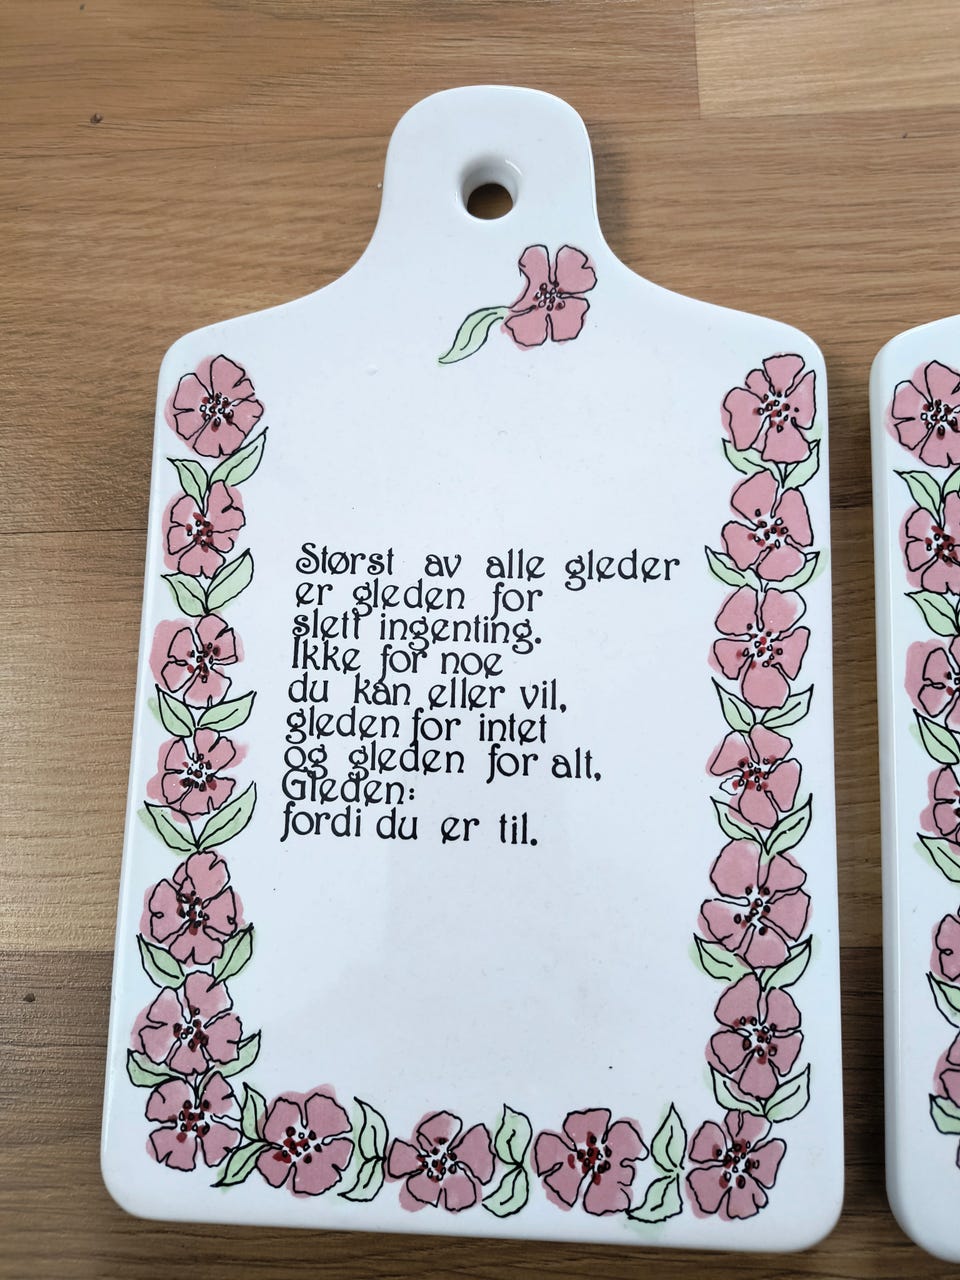 Størst av alle gleder
er gleden for
slett ingenting.
Ikke for noe
du kan eller vil,
gleden for intet
og gleden for alt,
Gleden:
fordi du er til.